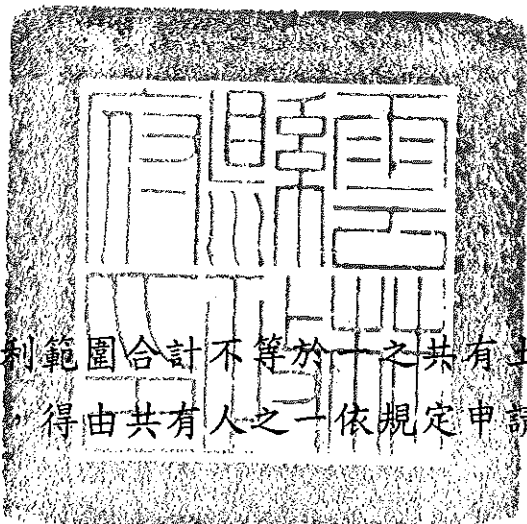 雲林
縣政
府印
利範圍合計不等於一之共有土
，得由共有人之一依規定申請